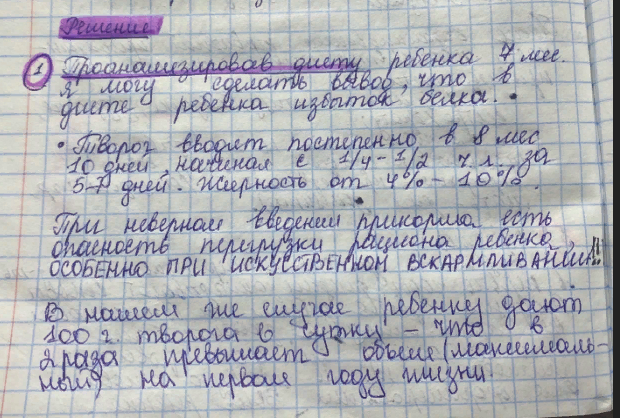 Решение
1 Проанализировав диету ребенка 7 мес.
я могу сделать вывод, что в
диете ребенка избыток белка.
• Творог вводят постепенно в 8 мес
10 дней, начиная с 1/4-1/2 ч.л. за
5-7 дней. Жирность от 4% - 10%.
При неверном введении прикорма есть
опасность перегрузки рациона ребенка,
ОСОБЕННО ПРИ ИСКУССТВЕННОМ ВСКАРМЛИВАНИИ!!
В нашем же случае ребенку дают
100 г. творога в сутки – что в
2 раза превышает объем (максималь-
ный) на первом году жизни.